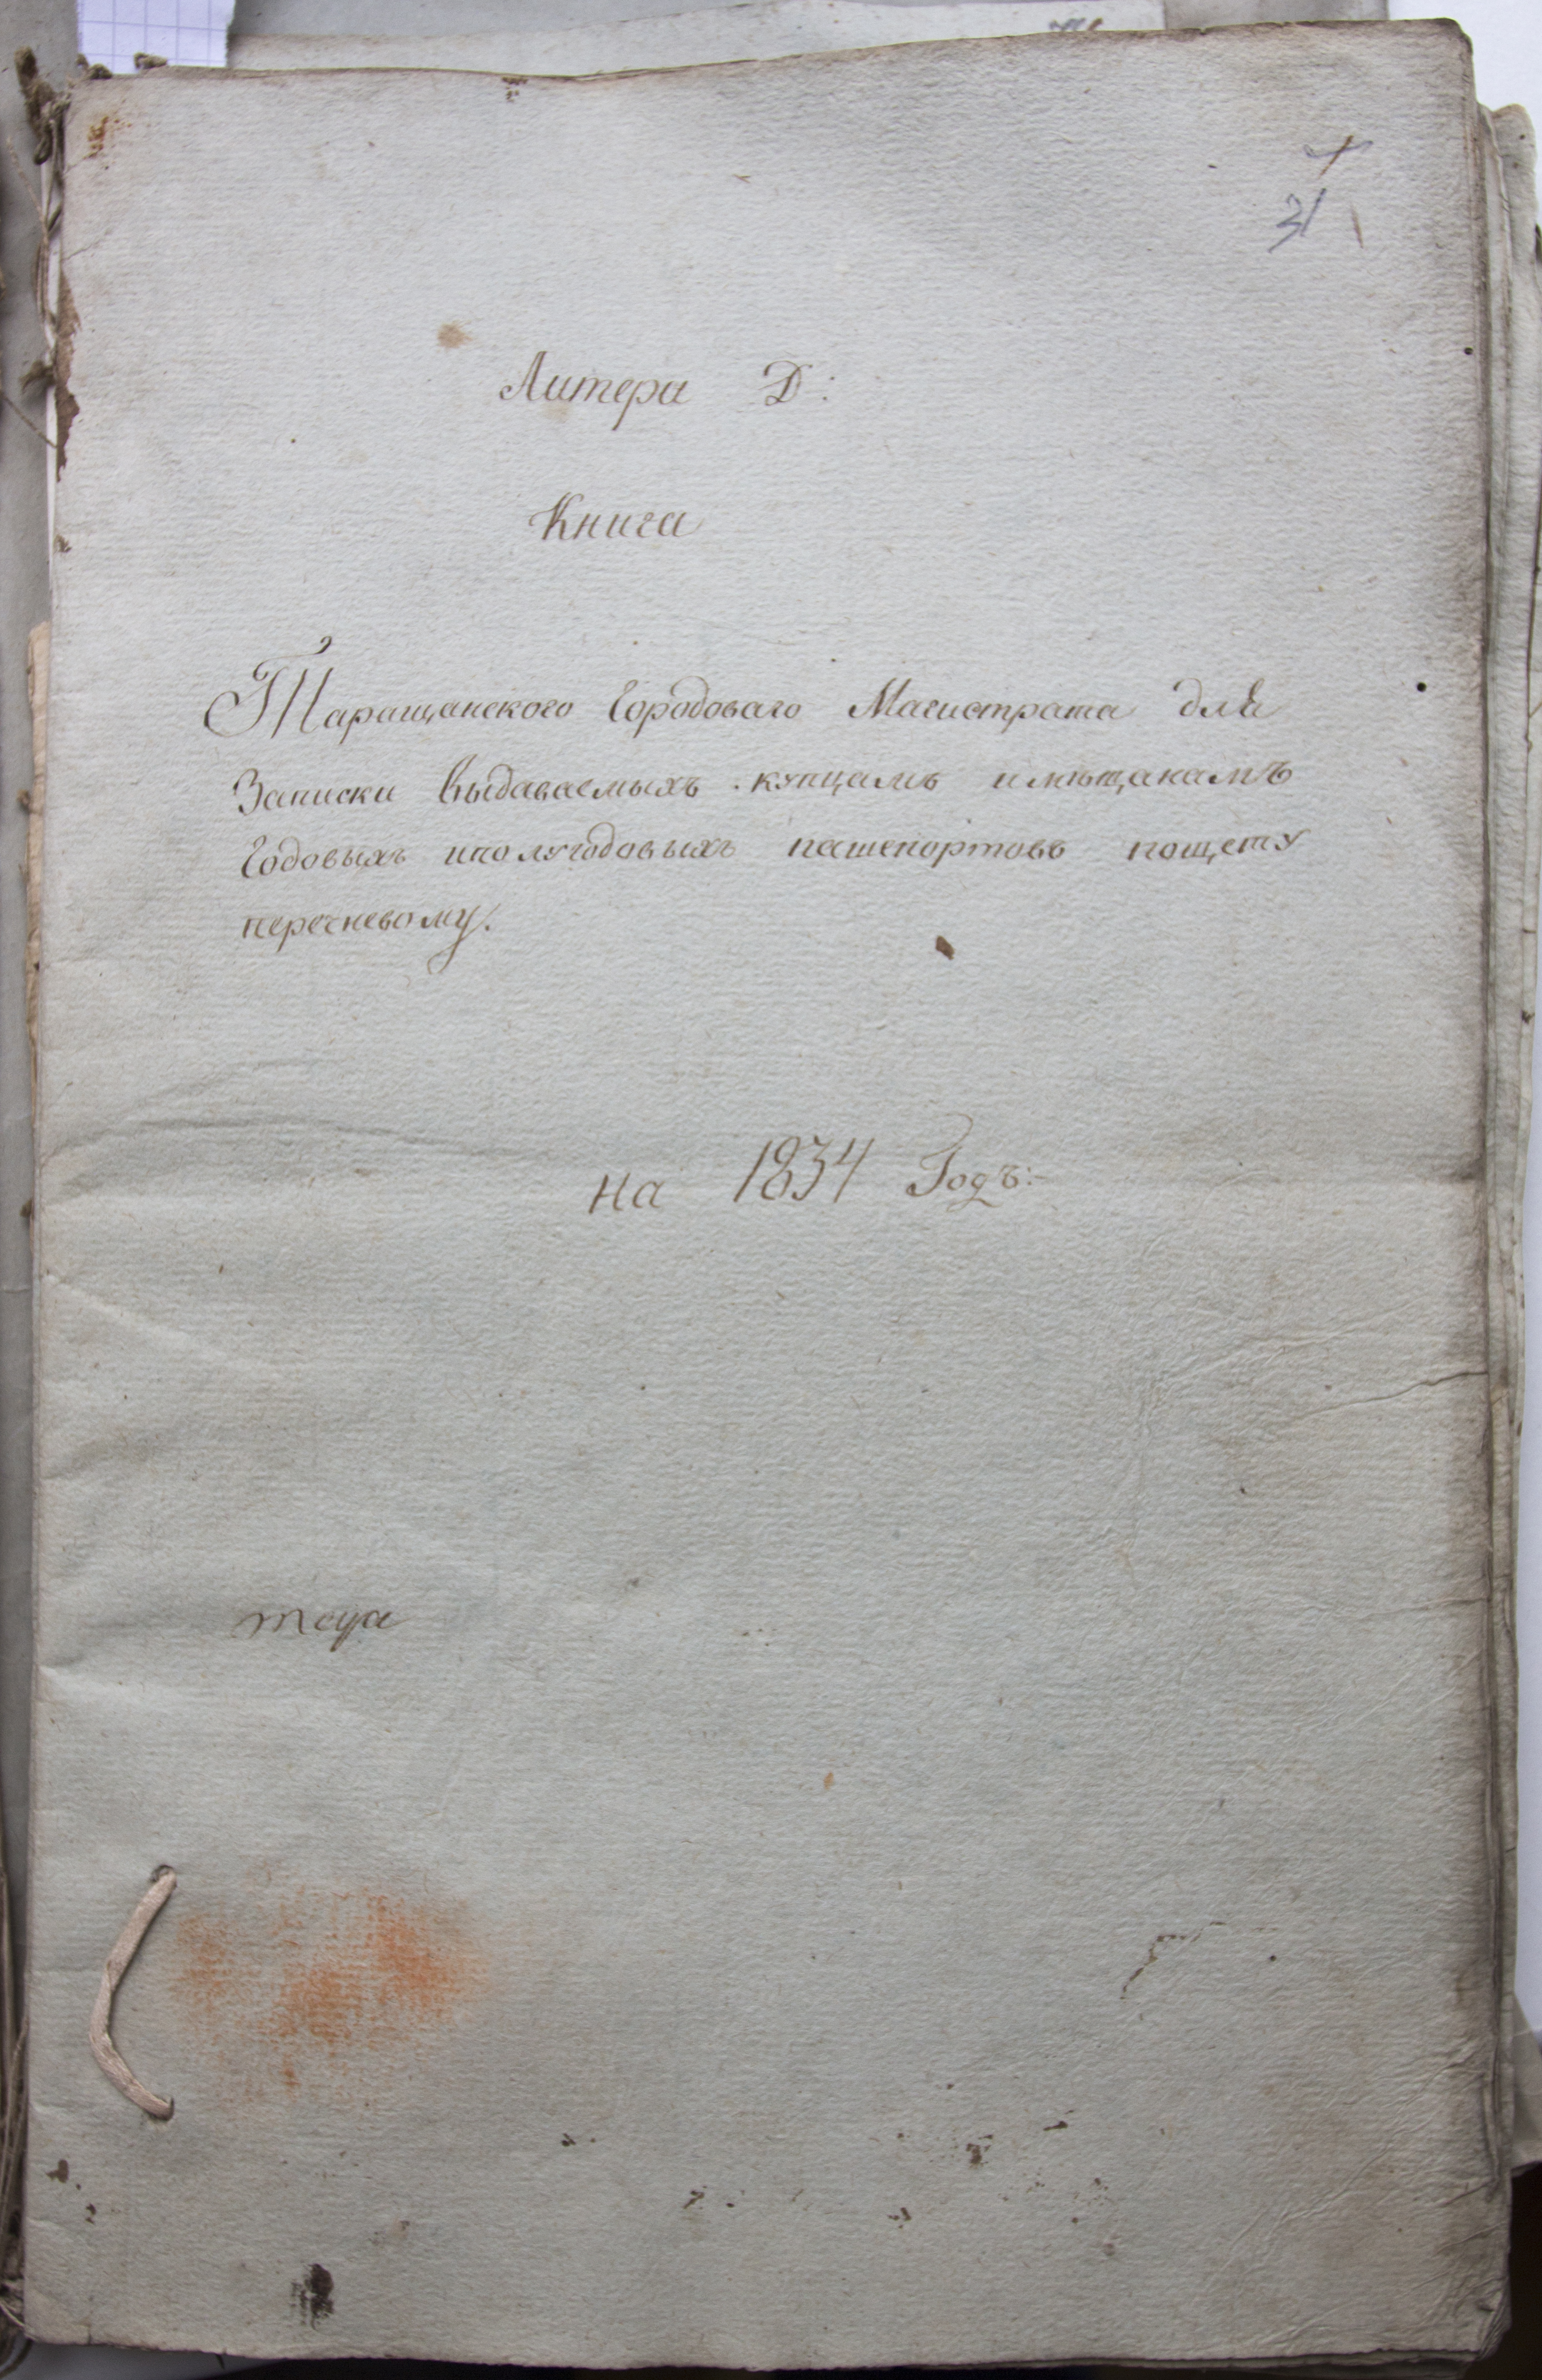 31
Литера Д:
Книга
Таращанского Городоваго Магистрата для
Записки выдаваемыхъ купцамъ имѣщанамъ
Годовыхъ иполугодовыхъ пашепортовъ пощету
перечневому.
на 1834 Годъ: